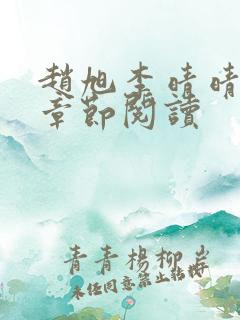 趙旭李晴晴
章節閱讀
青青楊柳岸
未任同意禁止轉載